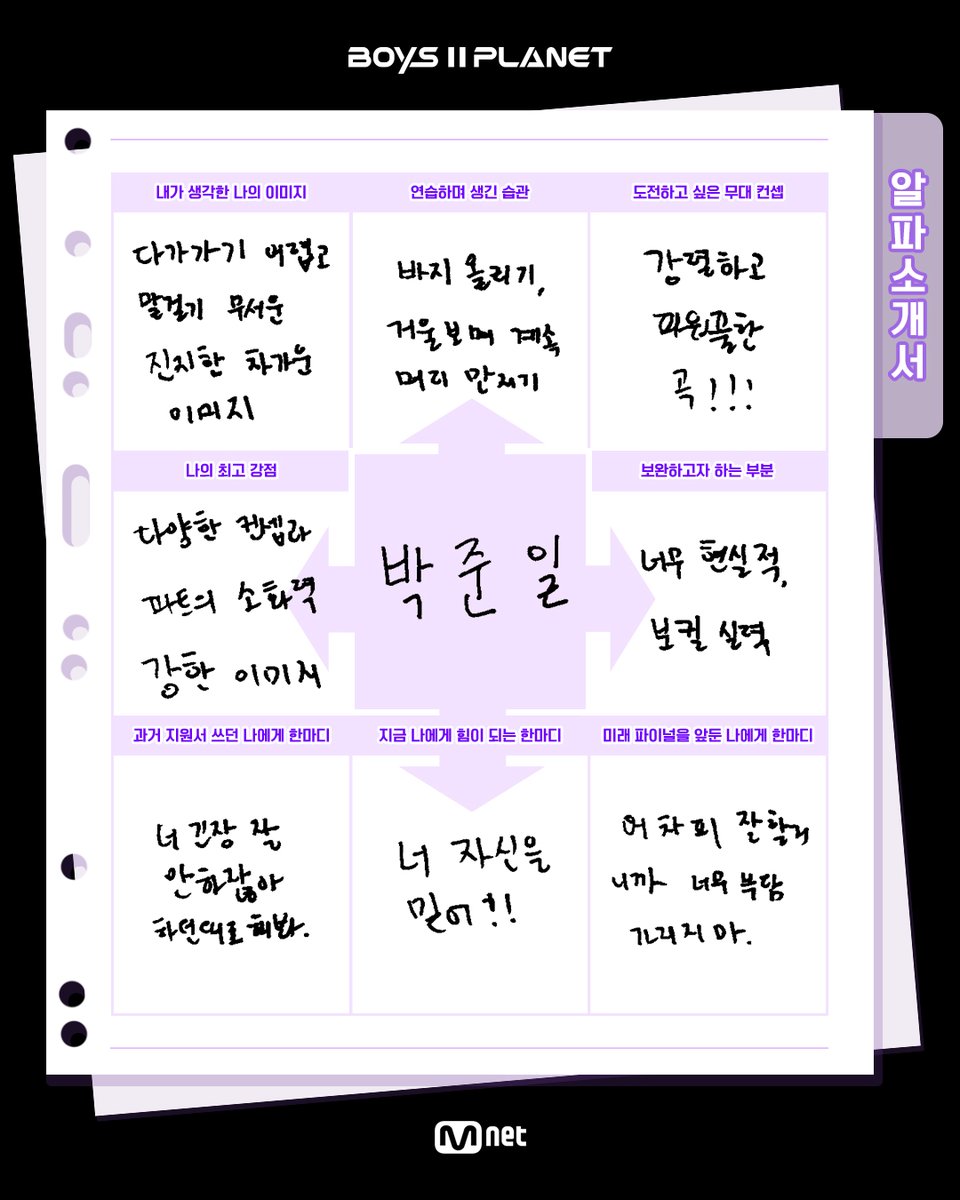 BOYS II PLANET
알파소개서
내가 생각한 나의 이미지
다가가기 어렵고
말걸기 무서운
진지한 차가운
이미지
연습하며 생긴 습관
바지 올리기,
거울보며 계속
머리 만지기
도전하고 싶은 무대 컨셉
강렬하고
파워풀한
곡!!!
나의 최고 강점
다양한 컨셉과
파트의 소화력
강한 이미지
박준일
보완하고자 하는 부분
너무 현실적,
보컬 실력
과거 지원서 쓰던 나에게 한마디
너 긴장 잘
안하잖아
하던대로 해봐.
지금 나에게 힘이 되는 한마디
너 자신을
믿어!!
미래 파이널을 앞둔 나에게 한마디
어차피 잘할거
니까 너무 부담
가지지 마.
Mnet